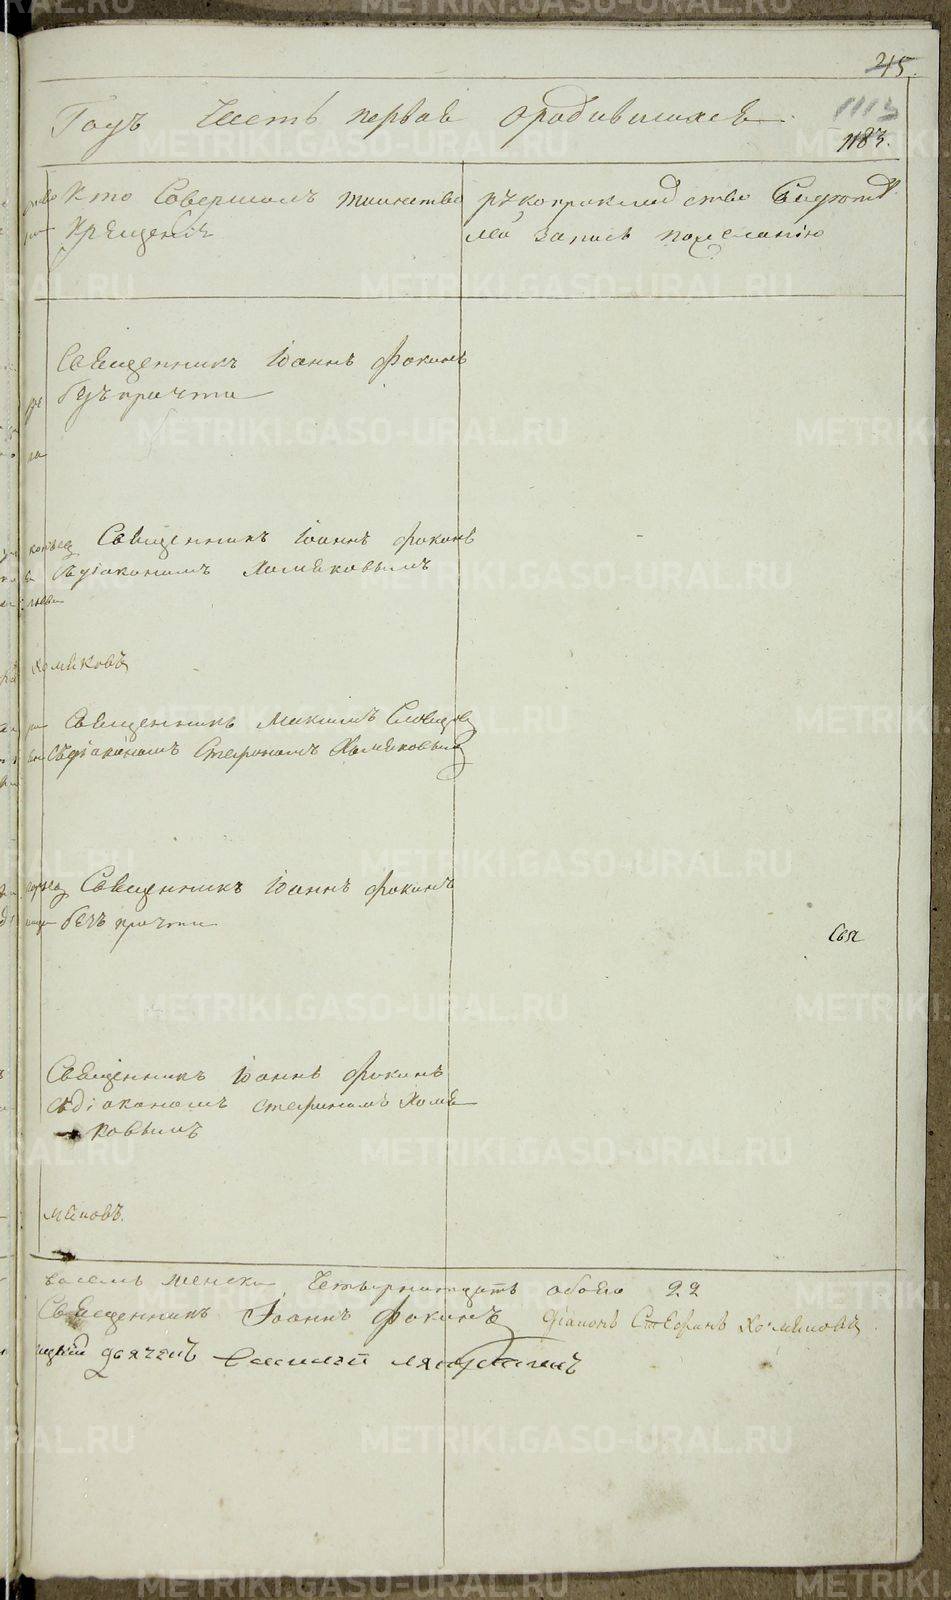 45.
1113
1183.
Годъ Часть первая ородившихся
Кто Совершалъ таинство
Крещенія
рукоприкладство Свидѣте
лей запись пожеланію
Священникъ Іоаннъ Фокинъ
безъ причта
Священникъ Іоаннъ Фокинъ
съ діакономъ Хомяковымъ
Хомяковъ
Священникъ Максимъ Словцовъ
съ діакономъ Стефаномъ Хомяковымъ
Священникъ Іоаннъ Фокинъ
безъ причта
Свя
Священникъ Іоаннъ Фокинъ
съ діакономъ Стефаномъ Хомя
ковымъ
мяковъ.
восемь женска Четырнатцать обоего 22
Священникъ Іоаннъ Фокинъ Діаконъ Стефанъ Хомяковъ
дьячекъ
METRIKI.GASO-URAL.RU